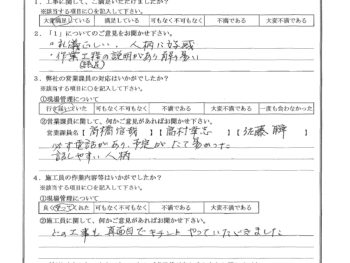 1．工事に関して、ご満足いただけましたか？
※該当する項目に○を記入して下さい。
大変満足している 満足している 可もなく不可もなく 不満である 大変不満である
2．「1」についてのご意見をお聞かせ下さい。
・礼儀正しい、人柄に好感
・作業工程の説明があり解り易い
3．弊社の営業課員の対応はいかがでしたか？
※該当する項目に○を記入して下さい。
①現場管理について
行き届いていた 可もなく不可もなく 不満である 大変不満である 一度も会わなかった
②営業課員に関して、何かご意見があればお聞かせ下さい。
営業課員名【高橋信哉】【高村 】【佐藤 瞬】
必ず電話があり、予定がたて易かった
話しやすい人柄
4．施工員の作業内容等はいかがでしたか？
※該当する項目に○を記入して下さい。
①現場管理について
良くやってくれた 可もなく不可もなく 不満である 大変不満である
②施工員に関して、何かご意見があればお聞かせ下さい。
どの工事も真面目でキチントやっていただきました